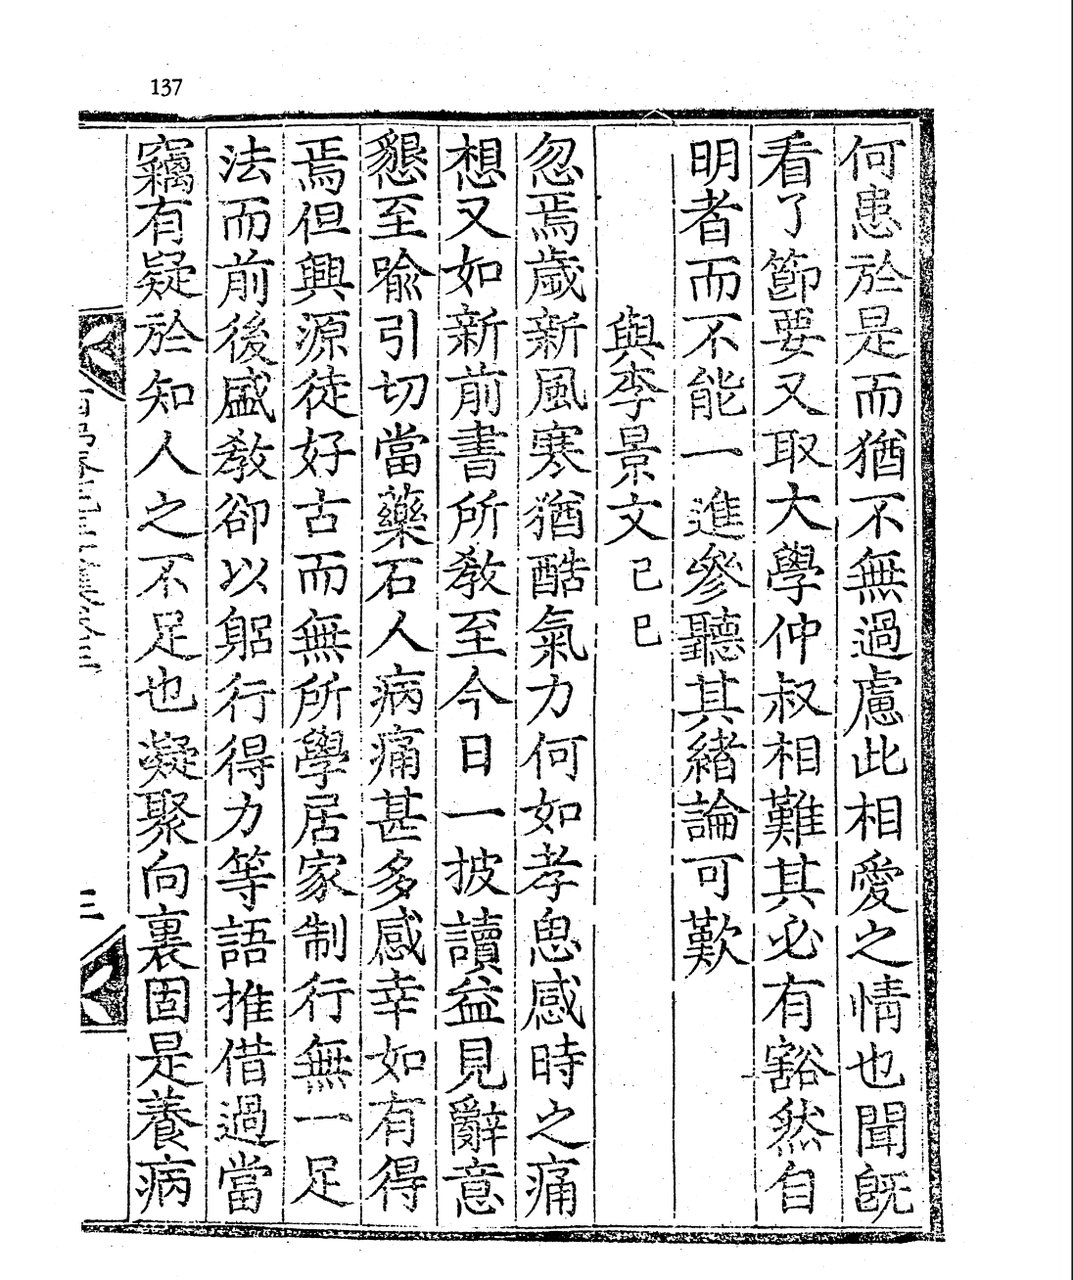 137
何患於是而猶不無過慮此相愛之情也聞旣
看了節要又取大學仲叔相難其必有豁然自
明者而不能一進參聽其緖論可歎
與李景文己巳
忽焉歲新風寒猶酷氣力何如孝思感時之痛
想又如新前書所敎至今日一披讀益見辭意
懇至喩引切當藥石人病痛甚多感幸如有得
焉但興源徒好古而無所學居家制行無一足
法而前後盛敎卻以躳行得力等語推借過當
竊有疑於知人之不足也凝聚向裏固是養病
三